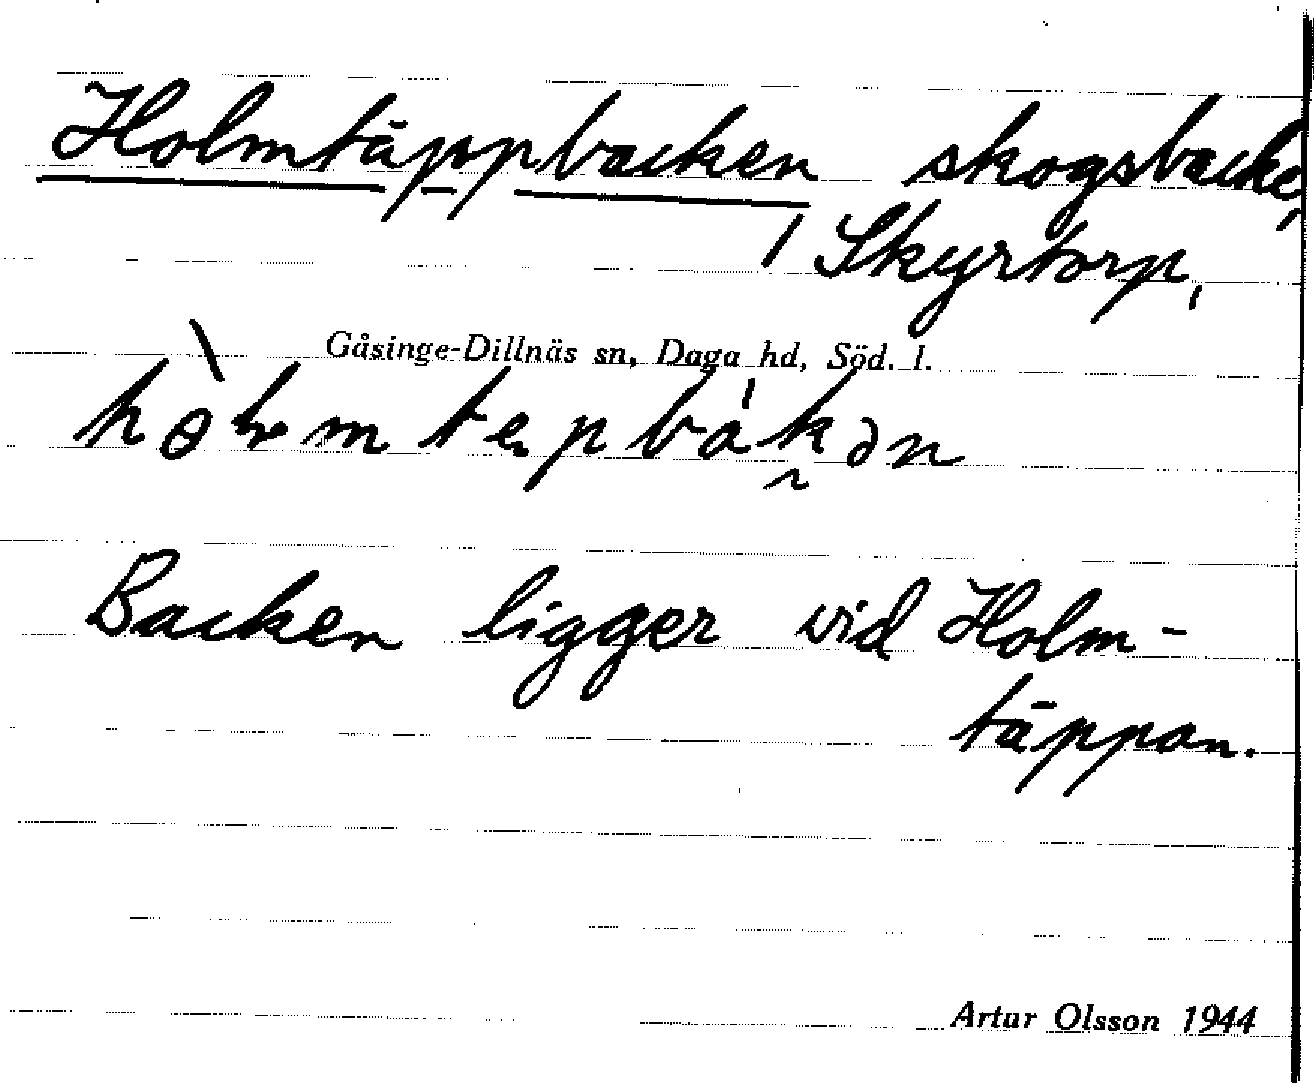 Holmtäppbacken skogsbacke,
/ Skyrtorp,
Gåsinge-Dillnäs sn, Daga hd, Söd. l.
Backen ligger vid Holm-
täppan.
Artur Olsson 1944